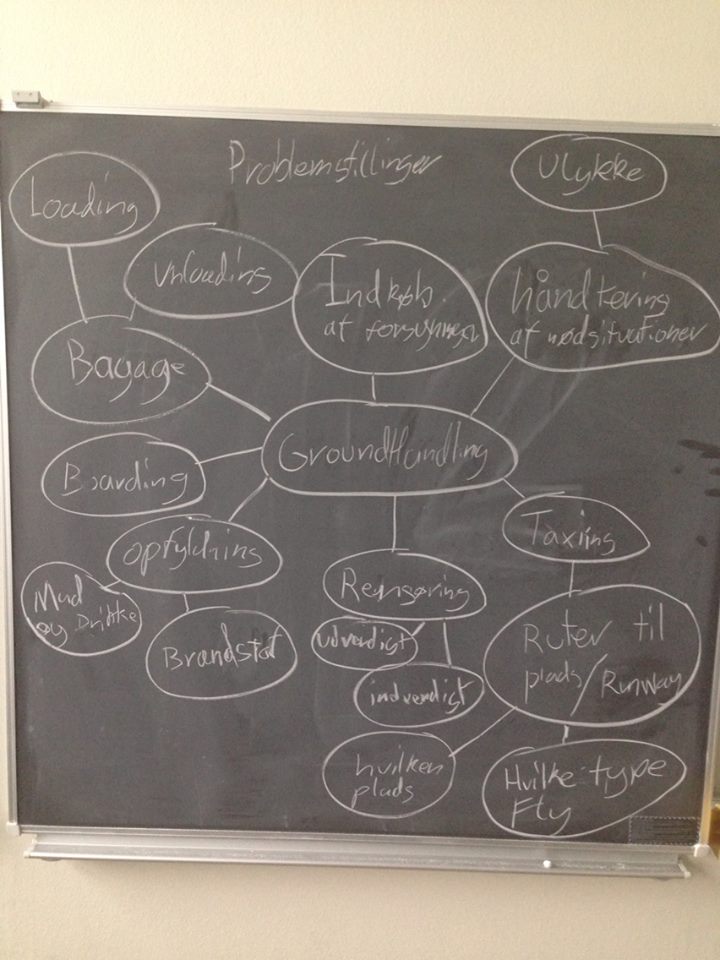 Problemstillinger
Ulykke
Loading
Unloading
Indkøb
af forsyninger
håndtering
af nødsituationer
Bagage
GroundHandling
Boarding
Taxiing
opfyldning
Rengøring
Mad
og Drikke
Brandstof
udverdigt
indverdigt
Ruter til
plads/Runway
hvilken
plads
Hvilke type
Fly